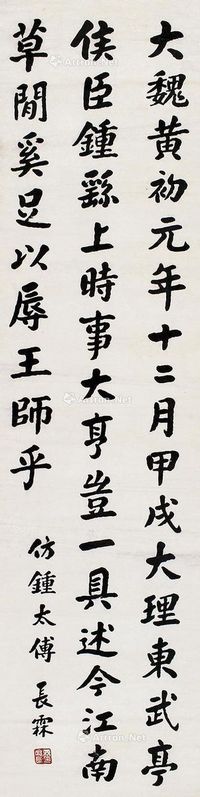 大魏黃初元年十二月甲戌大理東武亭
侯臣鍾繇上時事大亨豈一具述今江南
草閒奚足以辱王師乎
仿鍾太傅 長霖